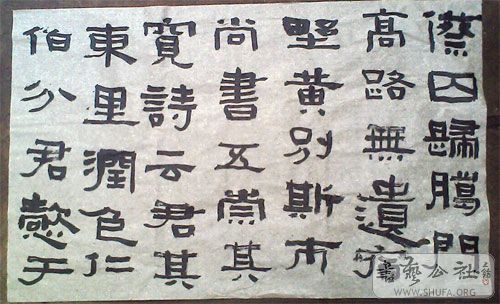 傺囚歸臈門
高路無遺
野黃別斯市
尚書五崇其
寬詩云君其
東里潤色仁
伯分君懿于
書藝公社
WWW.SHUFA.ORG